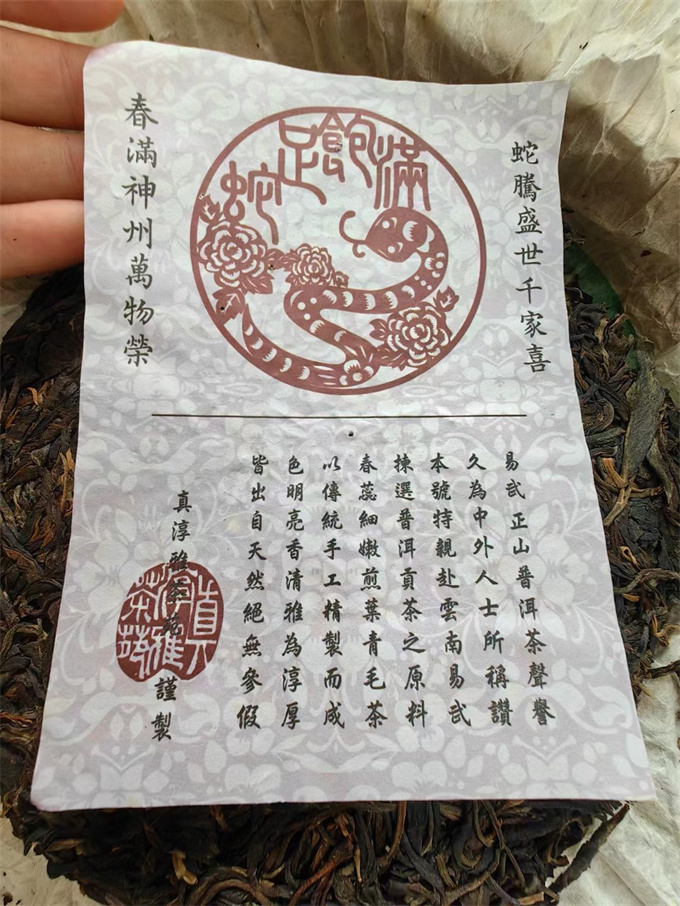 蛇足飽滿
蛇騰盛世千家喜
春滿神州萬物榮
易武正山普洱茶聲譽
久為中外人士所稱讚
本號特親赴雲南易武
揀選普洱貢茶之原料
春蕊細嫩煎葉青毛茶
以傳統手工精製而成
色明亮香清雅為淳厚
皆出自天然絕無參假
真淳雅茶苑謹製
真淳雅茶苑